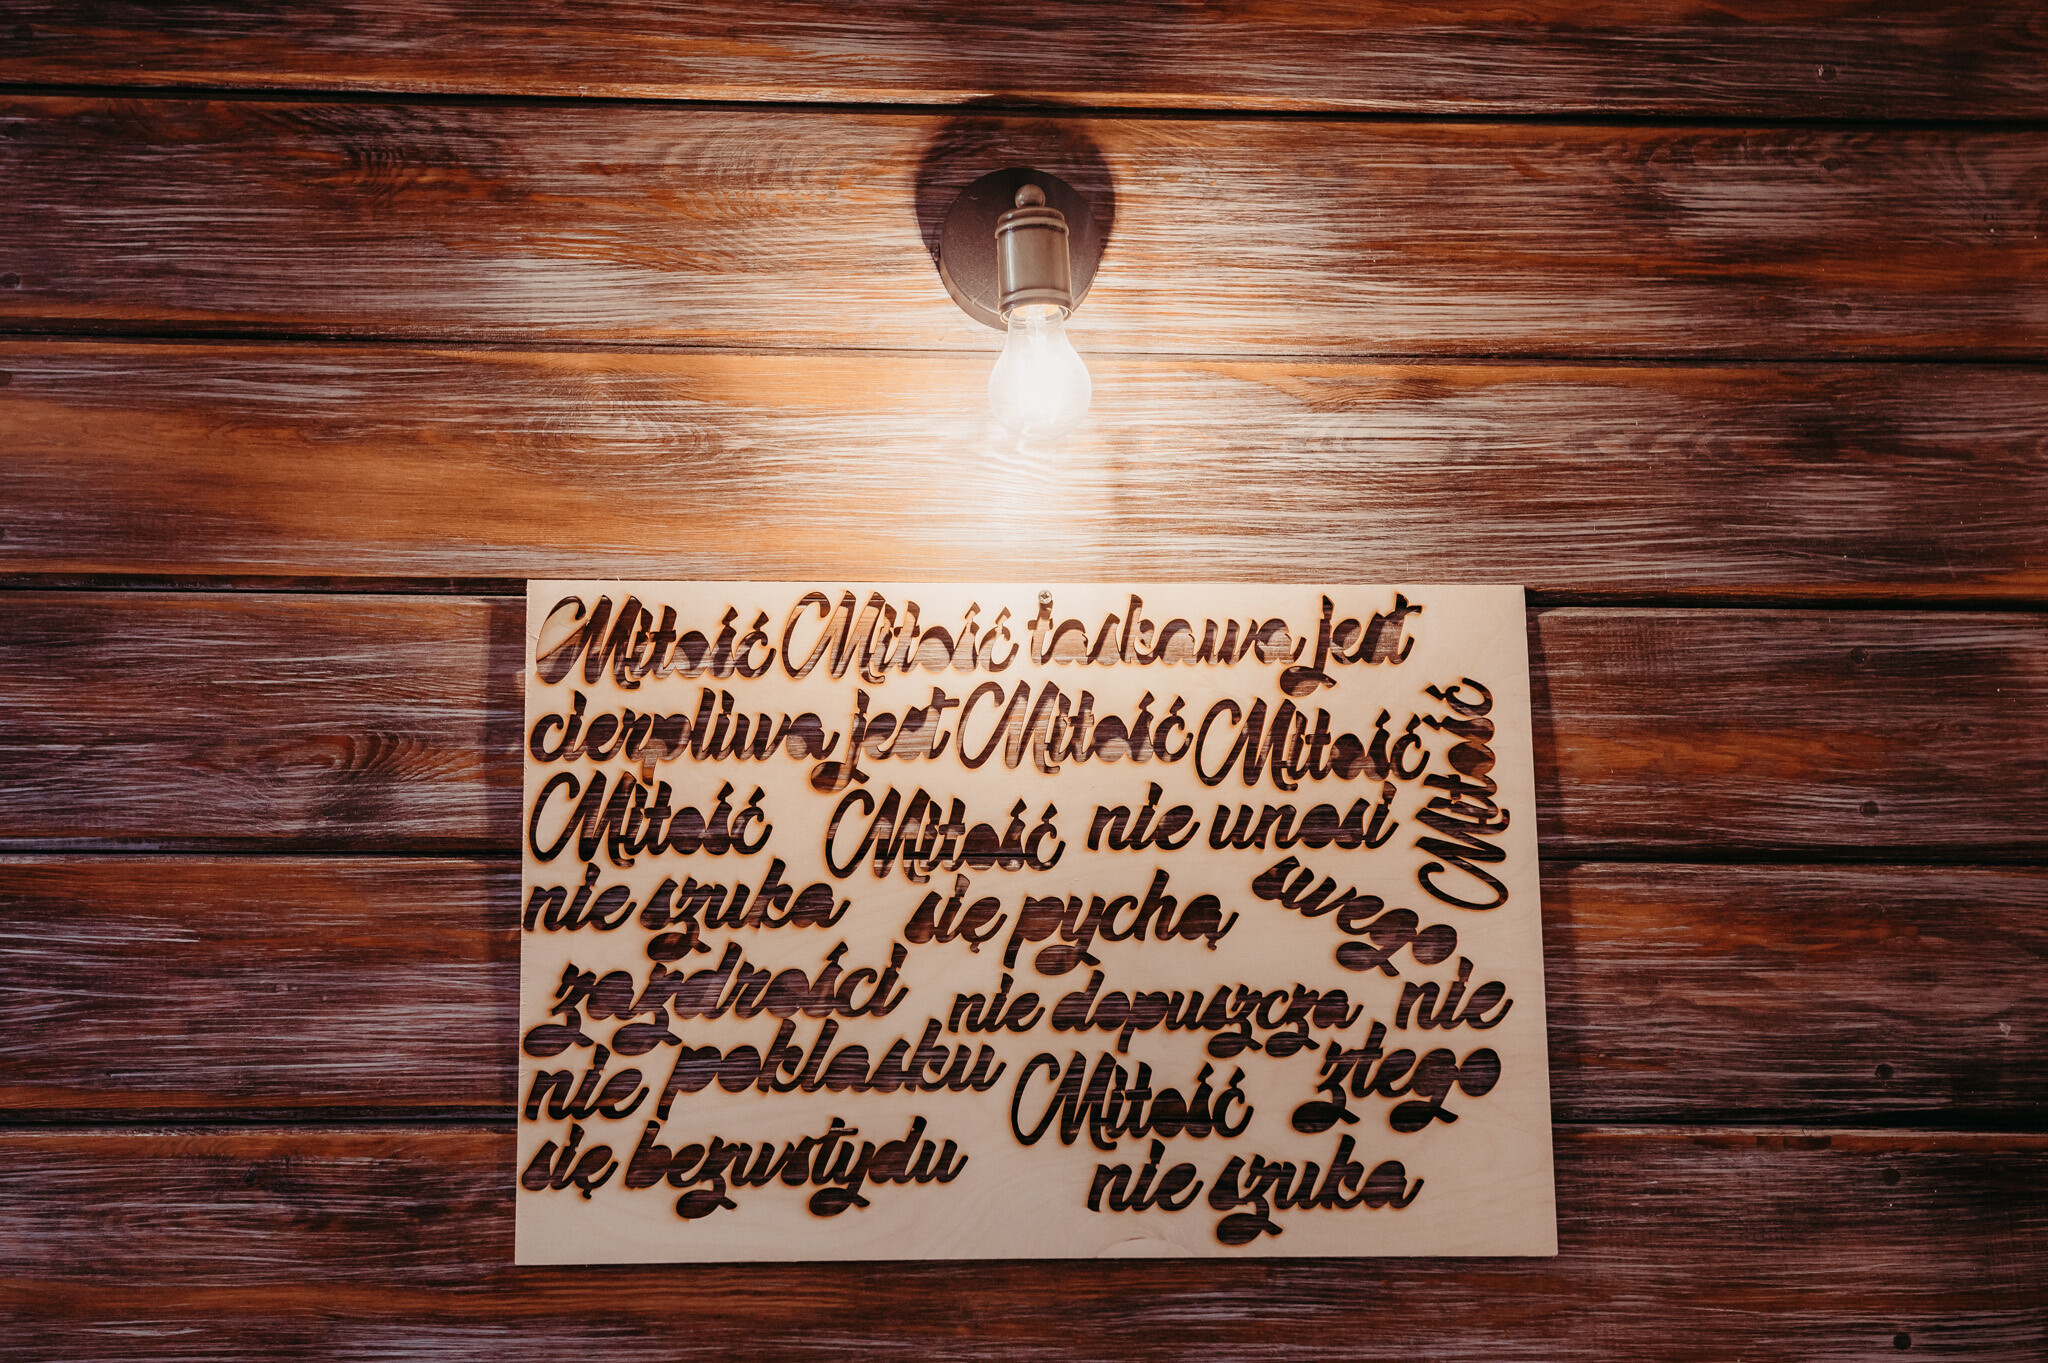 Miłość Miłość łaskawa jest
cierpliwa jest Miłość Miłość
Miłość
Miłość Miłość nie unosi
nie szuka się pychą swego
zazdrości nie dopuszcza nie
nie poklasku Miłość złego
się bezwstydu nie szuka